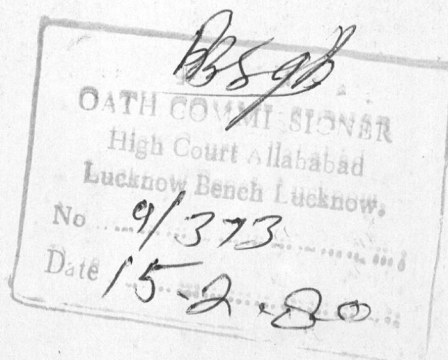 OATH COMMISSIONER
High Court Allahabad
Lucknow Bench Lucknow.
No 9/373
Date 15-2.80